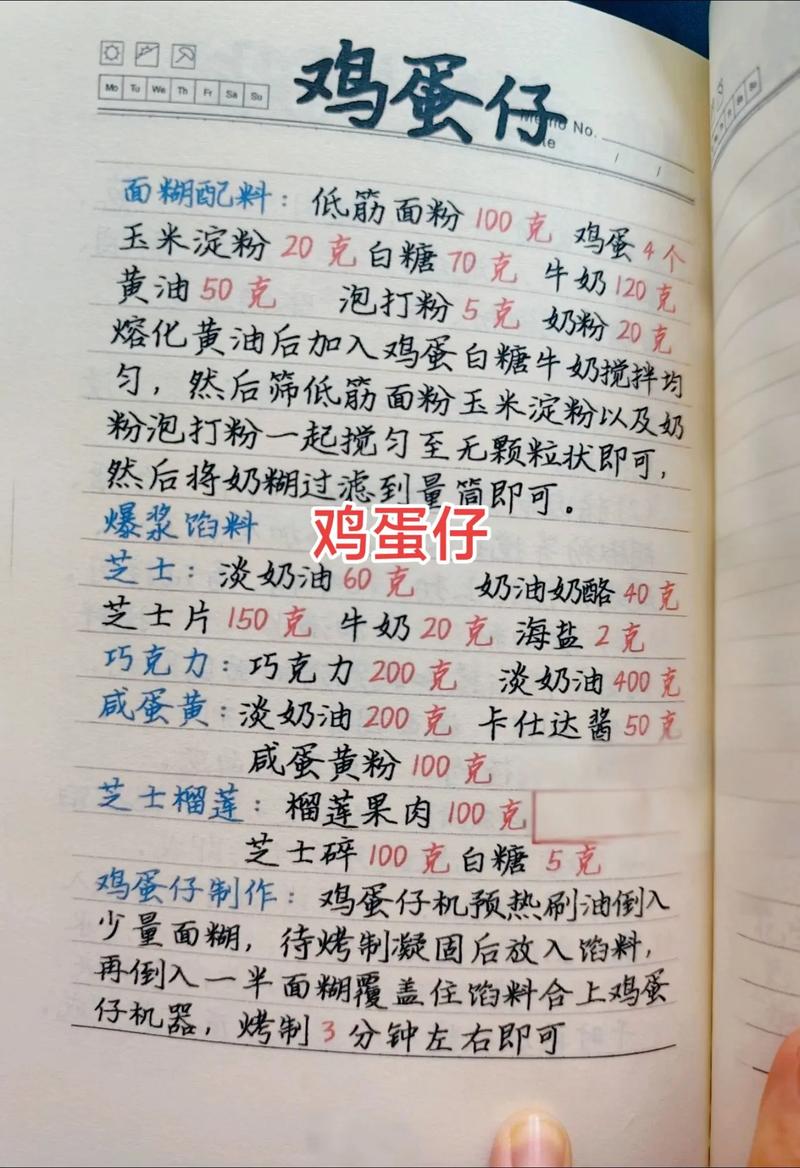 鸡蛋仔
Mo Tu We Th Fr Sa Su
No.
面糊配料：低筋面粉100克 鸡蛋4个
玉米淀粉20克白糖70克 牛奶120克
黄油50克 泡打粉5克 奶粉20克
熔化黄油后加入鸡蛋白糖牛奶搅拌均
匀，然后筛低筋面粉玉米淀粉以及奶
粉泡打粉一起搅匀至无颗粒状即可，
然后将奶糊过滤到量筒即可。
爆浆馅料
鸡蛋仔
芝士：淡奶油60克 奶油奶酪40克
芝士片150克 牛奶20克 海盐2克
巧克力：巧克力200克 淡奶油400克
咸蛋黄：淡奶油200克 卡仕达酱50克
咸蛋黄粉100克
芝士榴莲：榴莲果肉100克
芝士碎100克白糖5克
鸡蛋仔制作：鸡蛋仔机预热刷油倒入
少量面糊，待烤制凝固后放入馅料，
再倒入一半面糊覆盖住馅料合上鸡蛋
仔机器，烤制3分钟左右即可